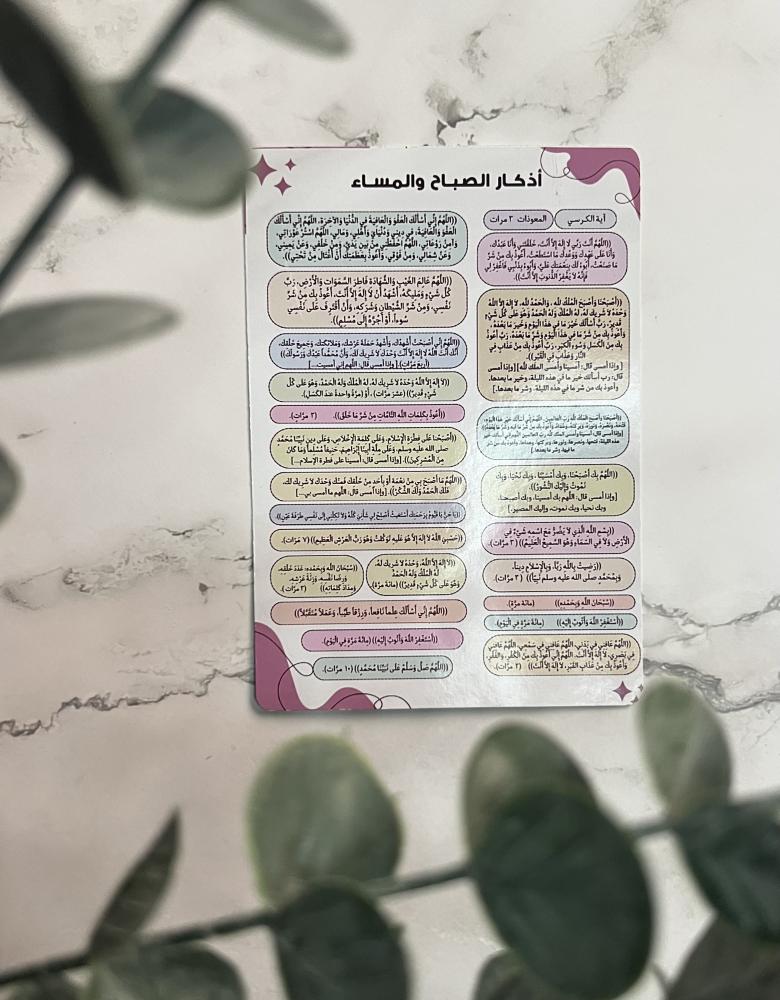 أذكار الصباح والمساء
آية الكرسي
المعوذات ٣ مرات
((اللَّهُمَّ أَنْتَ رَبِّي لَا إِلَهَ إِلَّا أَنْتَ، خَلَقْتَنِي وَأَنَا عَبْدُكَ،
وَأَنَا عَلَى عَهْدِكَ وَوَعْدِكَ مَا اسْتَطَعْتُ، أَعُوذُ بِكَ مِنْ شَرِّ
مَا صَنَعْتُ، أَبُوءُ لَكَ بِنِعْمَتِكَ عَلَيَّ، وَأَبُوءُ بِذَنْبِي فَاغْفِرْ لِي
فَإِنَّهُ لَا يَغْفِرُ الذُّنُوبَ إِلَّا أَنْتَ)).
((أَصْبَحْنَا وَأَصْبَحَ الْمُلْكُ لِلَّهِ، وَالْحَمْدُ لِلَّهِ، لَا إِلَهَ إِلَّا اللَّهُ
وَحْدَهُ لَا شَرِيكَ لَهُ، لَهُ الْمُلْكُ وَلَهُ الْحَمْدُ وَهُوَ عَلَى كُلِّ شَيْءٍ
قَدِيرٌ، رَبِّ أَسْأَلُكَ خَيْرَ مَا فِي هَذَا الْيَوْمِ وَخَيْرَ مَا بَعْدَهُ،
وَأَعُوذُ بِكَ مِنْ شَرِّ مَا فِي هَذَا الْيَوْمِ وَشَرِّ مَا بَعْدَهُ، رَبِّ أَعُوذُ
بِكَ مِنَ الْكَسَلِ وَسُوءِ الْكِبَرِ، رَبِّ أَعُوذُ بِكَ مِنْ عَذَابٍ فِي
النَّارِ وَعَذَابٍ فِي الْقَبْرِ)).
[وإذا أمسى قال: أمسينا وأمسى الملك لله] [وإذا أمسى
قال: رب أسألك خير ما في هذه الليلة، وخير ما بعدها،
وأعوذ بك من شر ما في هذه الليلة وشر ما بعدها.
((أَصْبَحْنَا وَأَصْبَحَ الْمُلْكُ لِلَّهِ رَبِّ الْعَالَمِينَ، اللَّهُمَّ إِنِّي أَسْأَلُكَ خَيْرَ هَذَا الْيَوْمِ،
فَتْحَهُ، وَنَصْرَهُ، وَنُورَهُ، وَبَرَكَتَهُ، وَهُدَاهُ، وَأَعُوذُ بِكَ مِنْ شَرِّ مَا فِيهِ وَشَرِّ مَا بَعْدَهُ))
((اللَّهُمَّ بِكَ أَصْبَحْنَا، وَبِكَ أَمْسَيْنَا، وَبِكَ نَحْيَا، وَبِكَ
نَمُوتُ وَإِلَيْكَ النُّشُورُ)).
[وإذا أمسى قال: اللهم بك أمسينا، وبك أصبحنا،
وبك نحيا، وبك نموت، وإليك المصير.]
((بِسْمِ اللَّهِ الَّذِي لَا يَضُرُّ مَعَ اسْمِهِ شَيْءٌ فِي
الْأَرْضِ وَلَا فِي السَّمَاءِ وَهُوَ السَّمِيعُ الْعَلِيمُ)) (٣ مرات).
((رَضِيتُ بِاللَّهِ رَبًّا، وَبِالْإِسْلَامِ دِيناً،
وَبِمُحَمَّدٍ صلى الله عليه وسلم نَبِيّاً)) (٣ مرات).
((سُبْحَانَ اللَّهِ وَبِحَمْدِهِ)) (مِائَةَ مَرَّةٍ).
((أَسْتَغْفِرُ اللَّهَ وَأَتُوبُ إِلَيْهِ)) (مِائَةَ مَرَّةٍ فِي الْيَوْمِ).
((اللَّهُمَّ عَافِنِي فِي بَدَنِي، اللَّهُمَّ عَافِنِي فِي سَمْعِي، اللَّهُمَّ عَافِنِي
فِي بَصَرِي، لَا إِلَهَ إِلَّا أَنْتَ. اللَّهُمَّ إِنِّي أَعُوذُ بِكَ مِنَ الْكُفْرِ، وَالْفَقْرِ،
وَأَعُوذُ بِكَ مِنْ عَذَابِ الْقَبْرِ، لَا إِلَهَ إِلَّا أَنْتَ)) (٣ مرات).
((اللَّهُمَّ إِنِّي أَسْأَلُكَ الْعَفْوَ وَالْعَافِيَةَ فِي الدُّنْيَا وَالْآخِرَةِ، اللَّهُمَّ إِنِّي أَسْأَلُكَ
الْعَفْوَ وَالْعَافِيَةَ: فِي دِينِي وَدُنْيَايَ وَأَهْلِي، وَمَالِي، اللَّهُمَّ اسْتُرْ عَوْرَاتِي،
وَآمِنْ رَوْعَاتِي، اللَّهُمَّ احْفَظْنِي مِنْ بَيْنِ يَدَيَّ، وَمِنْ خَلْفِي، وَعَنْ يَمِينِي،
وَعَنْ شِمَالِي، وَمِنْ فَوْقِي، وَأَعُوذُ بِعَظَمَتِكَ أَنْ أُغْتَالَ مِنْ تَحْتِي)).
((اللَّهُمَّ عَالِمَ الْغَيْبِ وَالشَّهَادَةِ فَاطِرَ السَّمَوَاتِ وَالْأَرْضِ، رَبَّ
كُلِّ شَيْءٍ وَمَلِيكَهُ، أَشْهَدُ أَنْ لَا إِلَهَ إِلَّا أَنْتَ، أَعُوذُ بِكَ مِنْ شَرِّ
نَفْسِي، وَمِنْ شَرِّ الشَّيْطَانِ وَشَرَكِهِ، وَأَنْ أَقْتَرِفَ عَلَى نَفْسِي
سُوءاً، أَوْ أَجُرَّهُ إِلَى مُسْلِمٍ)).
((اللَّهُمَّ إِنِّي أَصْبَحْتُ أُشْهِدُكَ، وَأُشْهِدُ حَمَلَةَ عَرْشِكَ، وَمَلَائِكَتَكَ، وَجَمِيعَ خَلْقِكَ،
أَنَّكَ أَنْتَ اللَّهُ لَا إِلَهَ إِلَّا أَنْتَ وَحْدَكَ لَا شَرِيكَ لَكَ، وَأَنَّ مُحَمَّداً عَبْدُكَ وَرَسُولُكَ))
(أربعَ مَرَّاتٍ). [وإذا أمسى قال: اللهم إني أمسيت...]
((لَا إِلَهَ إِلَّا اللَّهُ وَحْدَهُ لَا شَرِيكَ لَهُ، لَهُ الْمُلْكُ وَلَهُ الْحَمْدُ، وَهُوَ عَلَى كُلِّ
شَيْءٍ قَدِيرٌ)) (عشرَ مرّات)، أو (مرّةً واحدةً عندَ الكَسَلِ).
((أَعُوذُ بِكَلِمَاتِ اللَّهِ التَّامَّاتِ مِنْ شَرِّ مَا خَلَقَ)). (٣ مرّاتٍ).
((أَصْبَحْنَا عَلَى فِطْرَةِ الْإِسْلَامِ، وَعَلَى كَلِمَةِ الْإِخْلَاصِ، وَعَلَى دِينِ نَبِيِّنَا مُحَمَّدٍ
صلى الله عليه وسلم، وَعَلَى مِلَّةِ أَبِينَا إِبْرَاهِيمَ، حَنِيفاً مُسْلِماً وَمَا كَانَ
مِنَ الْمُشْرِكِينَ)). [وإذا أمسى قال: أمسينا على فطرة الإسلام...]
((اللَّهُمَّ مَا أَصْبَحَ بِي مِنْ نِعْمَةٍ أَوْ بِأَحَدٍ مِنْ خَلْقِكَ فَمِنْكَ وَحْدَكَ لَا شَرِيكَ لَكَ،
فَلَكَ الْحَمْدُ وَلَكَ الشُّكْرُ)). [وإذا أمسى قال: اللهم ما أمسى بي...]
((يَا حَيُّ يَا قَيُّومُ بِرَحْمَتِكَ أَسْتَغِيثُ أَصْلِحْ لِي شَأْنِيَ كُلَّهُ وَلَا تَكِلْنِي إِلَى نَفْسِي طَرْفَةَ عَيْنٍ))
((حَسْبِيَ اللَّهُ لَا إِلَهَ إِلَّا هُوَ عَلَيْهِ تَوَكَّلْتُ وَهُوَ رَبُّ الْعَرْشِ الْعَظِيمِ)) (٧ مَرّات).
((لَا إِلَهَ إِلَّا اللَّهُ، وَحْدَهُ لَا شَرِيكَ لَهُ،
لَهُ الْمُلْكُ وَلَهُ الْحَمْدُ
وَهُوَ عَلَى كُلِّ شَيْءٍ قَدِيرٌ)) (مائةَ مرّةٍ)
((سُبْحَانَ اللَّهِ وَبِحَمْدِهِ: عَدَدَ خَلْقِهِ،
وَرِضَا نَفْسِهِ، وَزِنَةَ عَرْشِهِ،
وَمِدَادَ كَلِمَاتِهِ)) (٣ مرّات).
((اللَّهُمَّ إِنِّي أَسْأَلُكَ عِلْماً نَافِعاً، وَرِزْقاً طَيِّباً، وَعَمَلاً مُتَقَبَّلاً))
((أَسْتَغْفِرُ اللَّهَ وَأَتُوبُ إِلَيْهِ)) (مِائَةَ مَرَّةٍ فِي الْيَوْمِ).
((اللَّهُمَّ صَلِّ وَسَلِّمْ عَلَى نَبِيِّنَا مُحَمَّدٍ)) (١٠ مرّات).